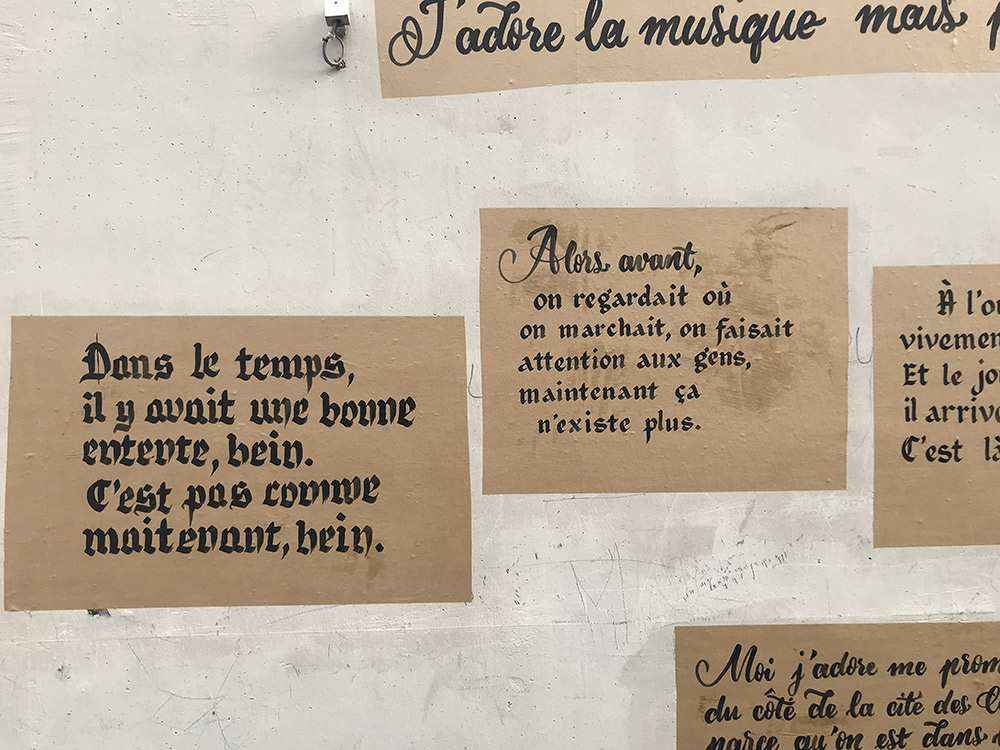 J'adore la musique mais
Dans le temps,
il y avait une bonne
entente, hein.
C'est pas comme
maitenant, hein.
Alors avant,
on regardait où
on marchait, on faisait
attention aux gens,
maintenant ça
n'existe plus.
À l'ou
vivemen
Et le jo
il arriv
C'est là
Moi j'adore me prom
du côté de la cité des
parce qu'on est dans